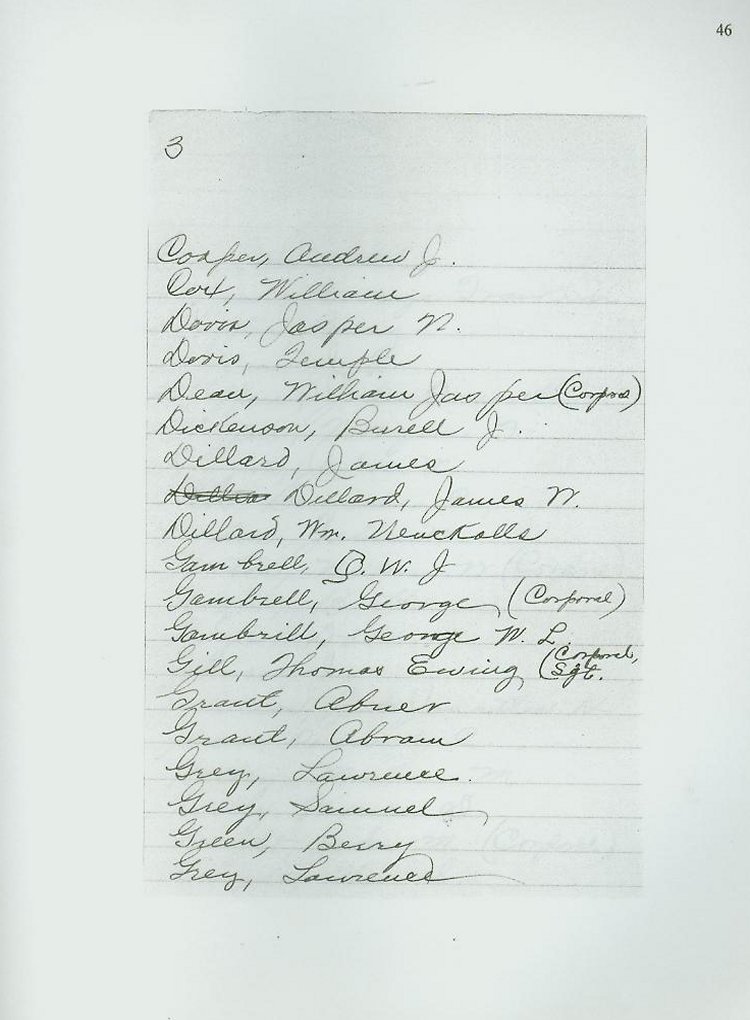 46
3
Cooper, Andrew J.
Cox, William
Davis, Jasper N.
Davis, Temple
Dean, William Jasper (Corporal)
Dickenson, Burell J.
Dillard, James
Dillard, James N.
Dillard, Wm. Neuckolls
Gambrell, B. W. J
Gambrell, George (Corporal)
Gambrill, George W. L.
Gill, Thomas Ewing (Corporal, Sgt.
Grant, Abner
Grant, Abram
Grey, Lawrence.
Grey, Samuel
Green, Berry
Grey, Lawrence